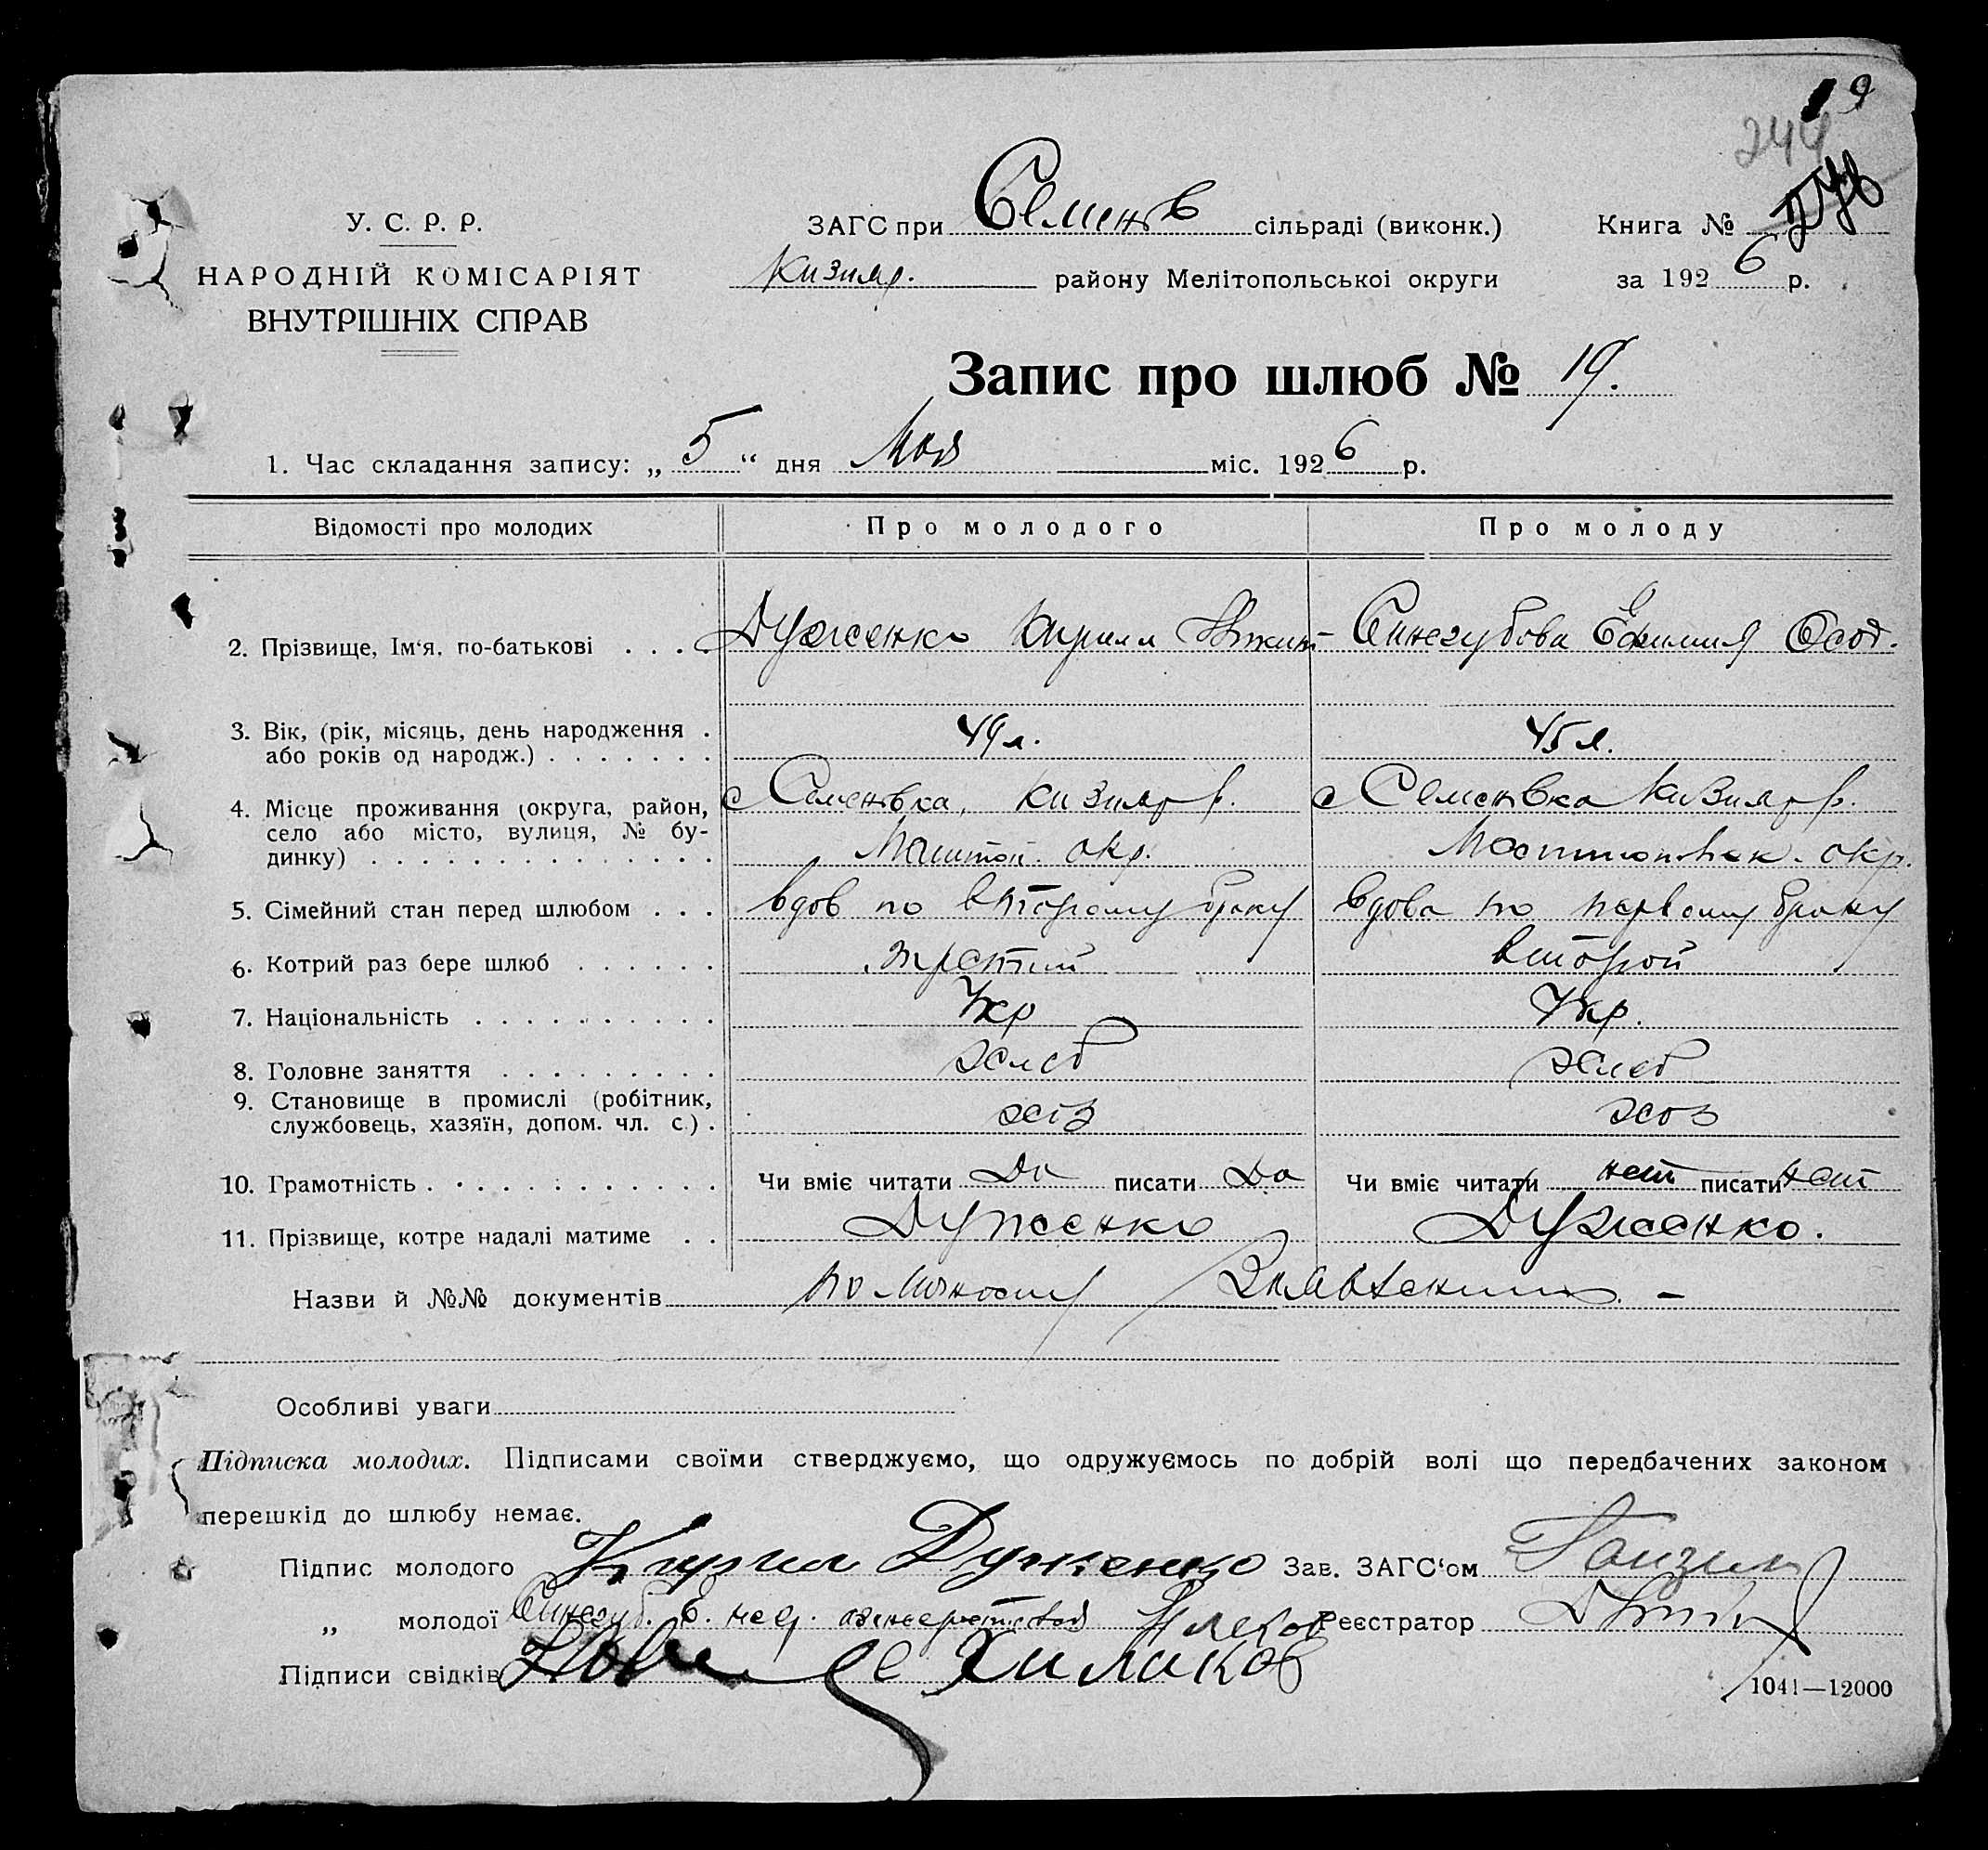 19
244
У. С. Р. Р.
НАРОДНІЙ КОМІСАРІЯТ
ВНУТРІШНІХ СПРАВ
ЗАГС при Семенов сільраді (виконк.)
Кизияр. району Мелітопольської округи
Книга №
за 1926 р.
Запис про шлюб № 19.
1. Час складання запису: „5“ дня Мая міс. 1926 р.
Відомості про молодих Про молодого Про молоду
2. Прізвище, Ім‘я, по-батькові . . . Дуженко Кирилл Синегубова Ефимия
3. Вік, (рік, місяць, день народження .
або років од народж.) . . . . . . . 49 л. 45 л.
4. Місце проживання (округа, район,
село або місто, вулиця, № бу-
динку) . . . . . . . . . . . . . .
с Семеновка, Кизияр р. с Семеновка Кизияр р.
Мелитоп. окр. окр.
5. Сімейний стан перед шлюбом . . . вдов по второму браку вдова по первому браку
6. Котрий раз бере шлюб . . . . . . третий второй
7. Національність . . . . . . . . . . Укр Укр.
8. Головне заняття . . . . . . . . . хлеб хлеб
9. Становище в промислі (робітник,
службовець, хазяїн, допом. чл. с.) . хоз хоз
10. Грамотність . . . . . . . . . . . . Чи вміє читати Да писати Да Чи вміє читати нет писати нет
11. Прізвище, котре надалі матиме . . Дуженко Дуженко.
Назви й №№ документів по личному
Особливі уваги
Підписка молодих. Підписами своїми стверджуємо, що одружуємось по добрій волі що передбачених законом
перешкід до шлюбу немає.
Підпис молодого Кирил Дуженко Зав. ЗАГС‘ом
„ молодої Синегуб. Е. Реєстратор
Підписи свідків Химиков
1041—12000